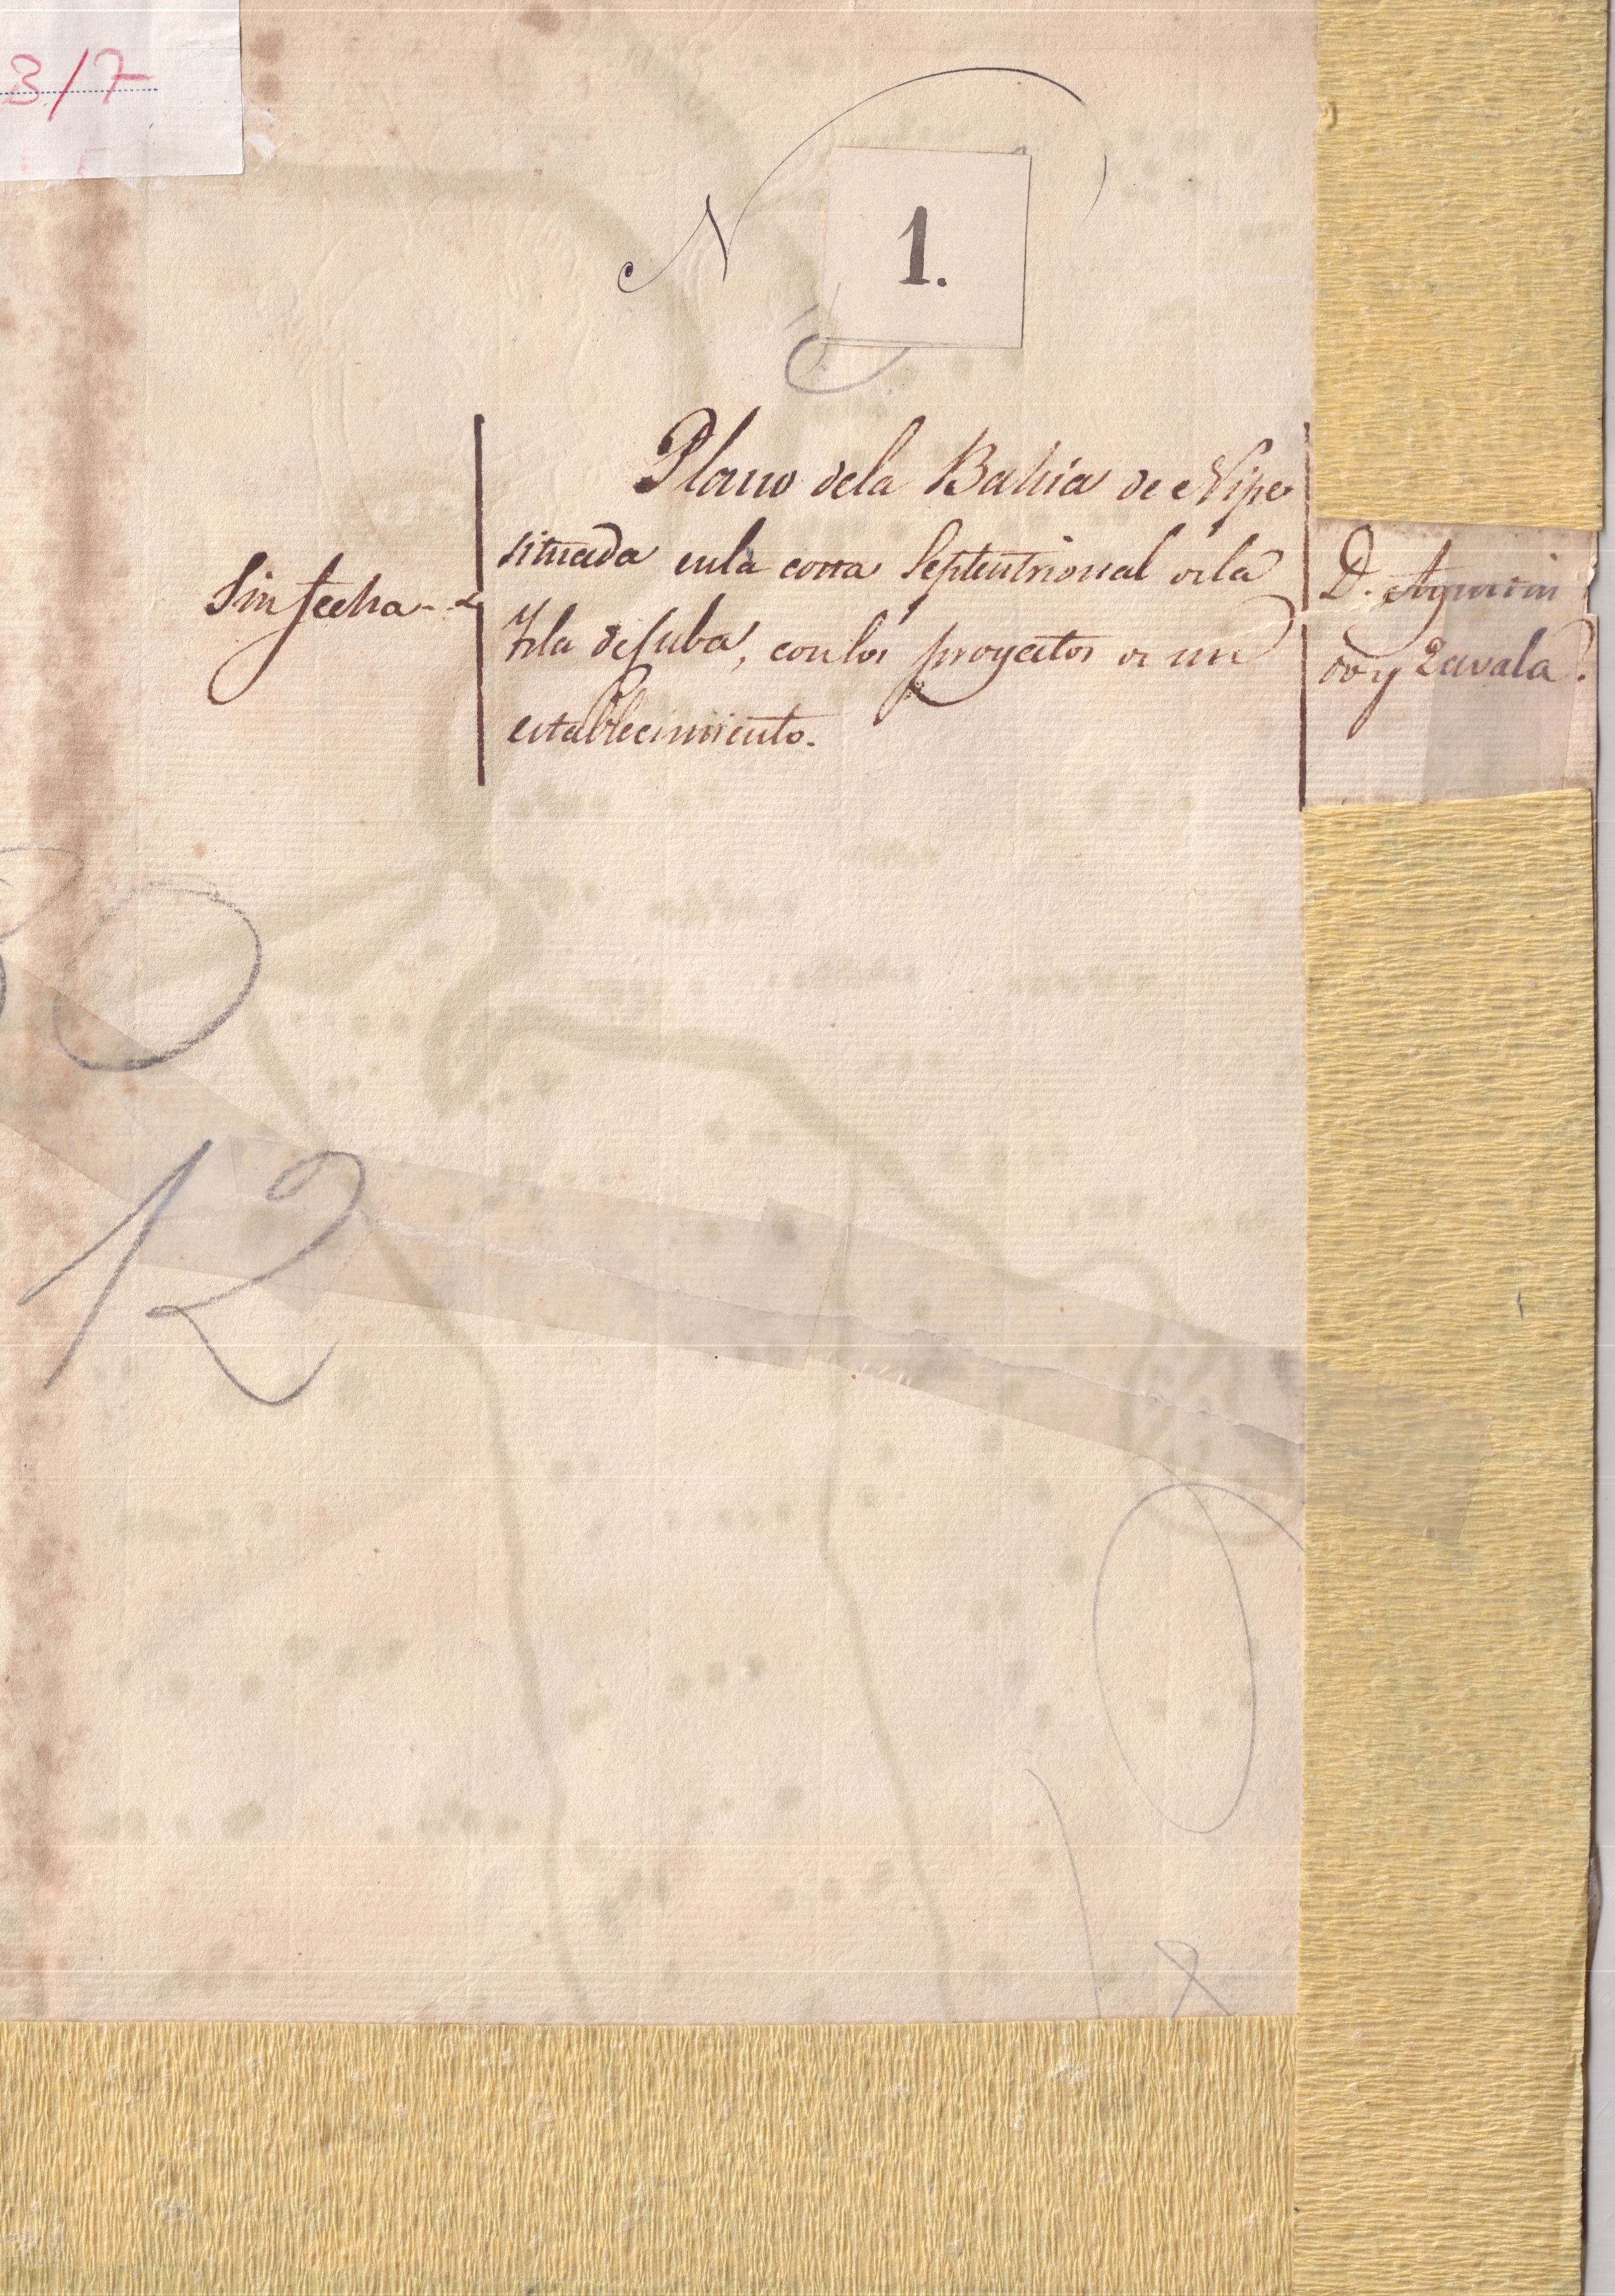 3/7
N
1.
Plano dela Bahia de Nipe
situada enla costa Septentrional dela
Isla de Cuba, con los proyectos de un
establecimiento.
Sin fecha
D. Agustin
y Zavala.
12